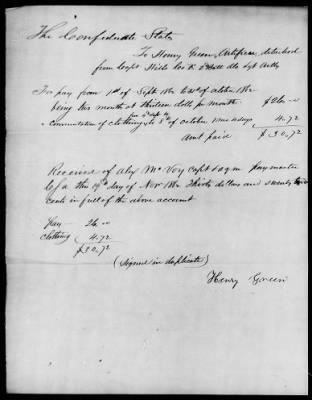 The Confederate States
To Henry Green, Artificer, detached
from Capt Co 2d Batt Art
To pay from 1st of Sept 186 to last of octobr 186
being two month at thirteen dolls pr month $26.00
" Commutation of Clothing to 8th of october 1 mo 4 days 4.72
Amt paid $30.72
Received of Alex McVoy Capt & aqm Paymaster
C S a this 19th day of Nov 186 Thirty dollars and seventy two
Cents in full of the above account
Pay 26.00
Clothing 4.72
$30.72
(Signed in duplicate)
Henry Green